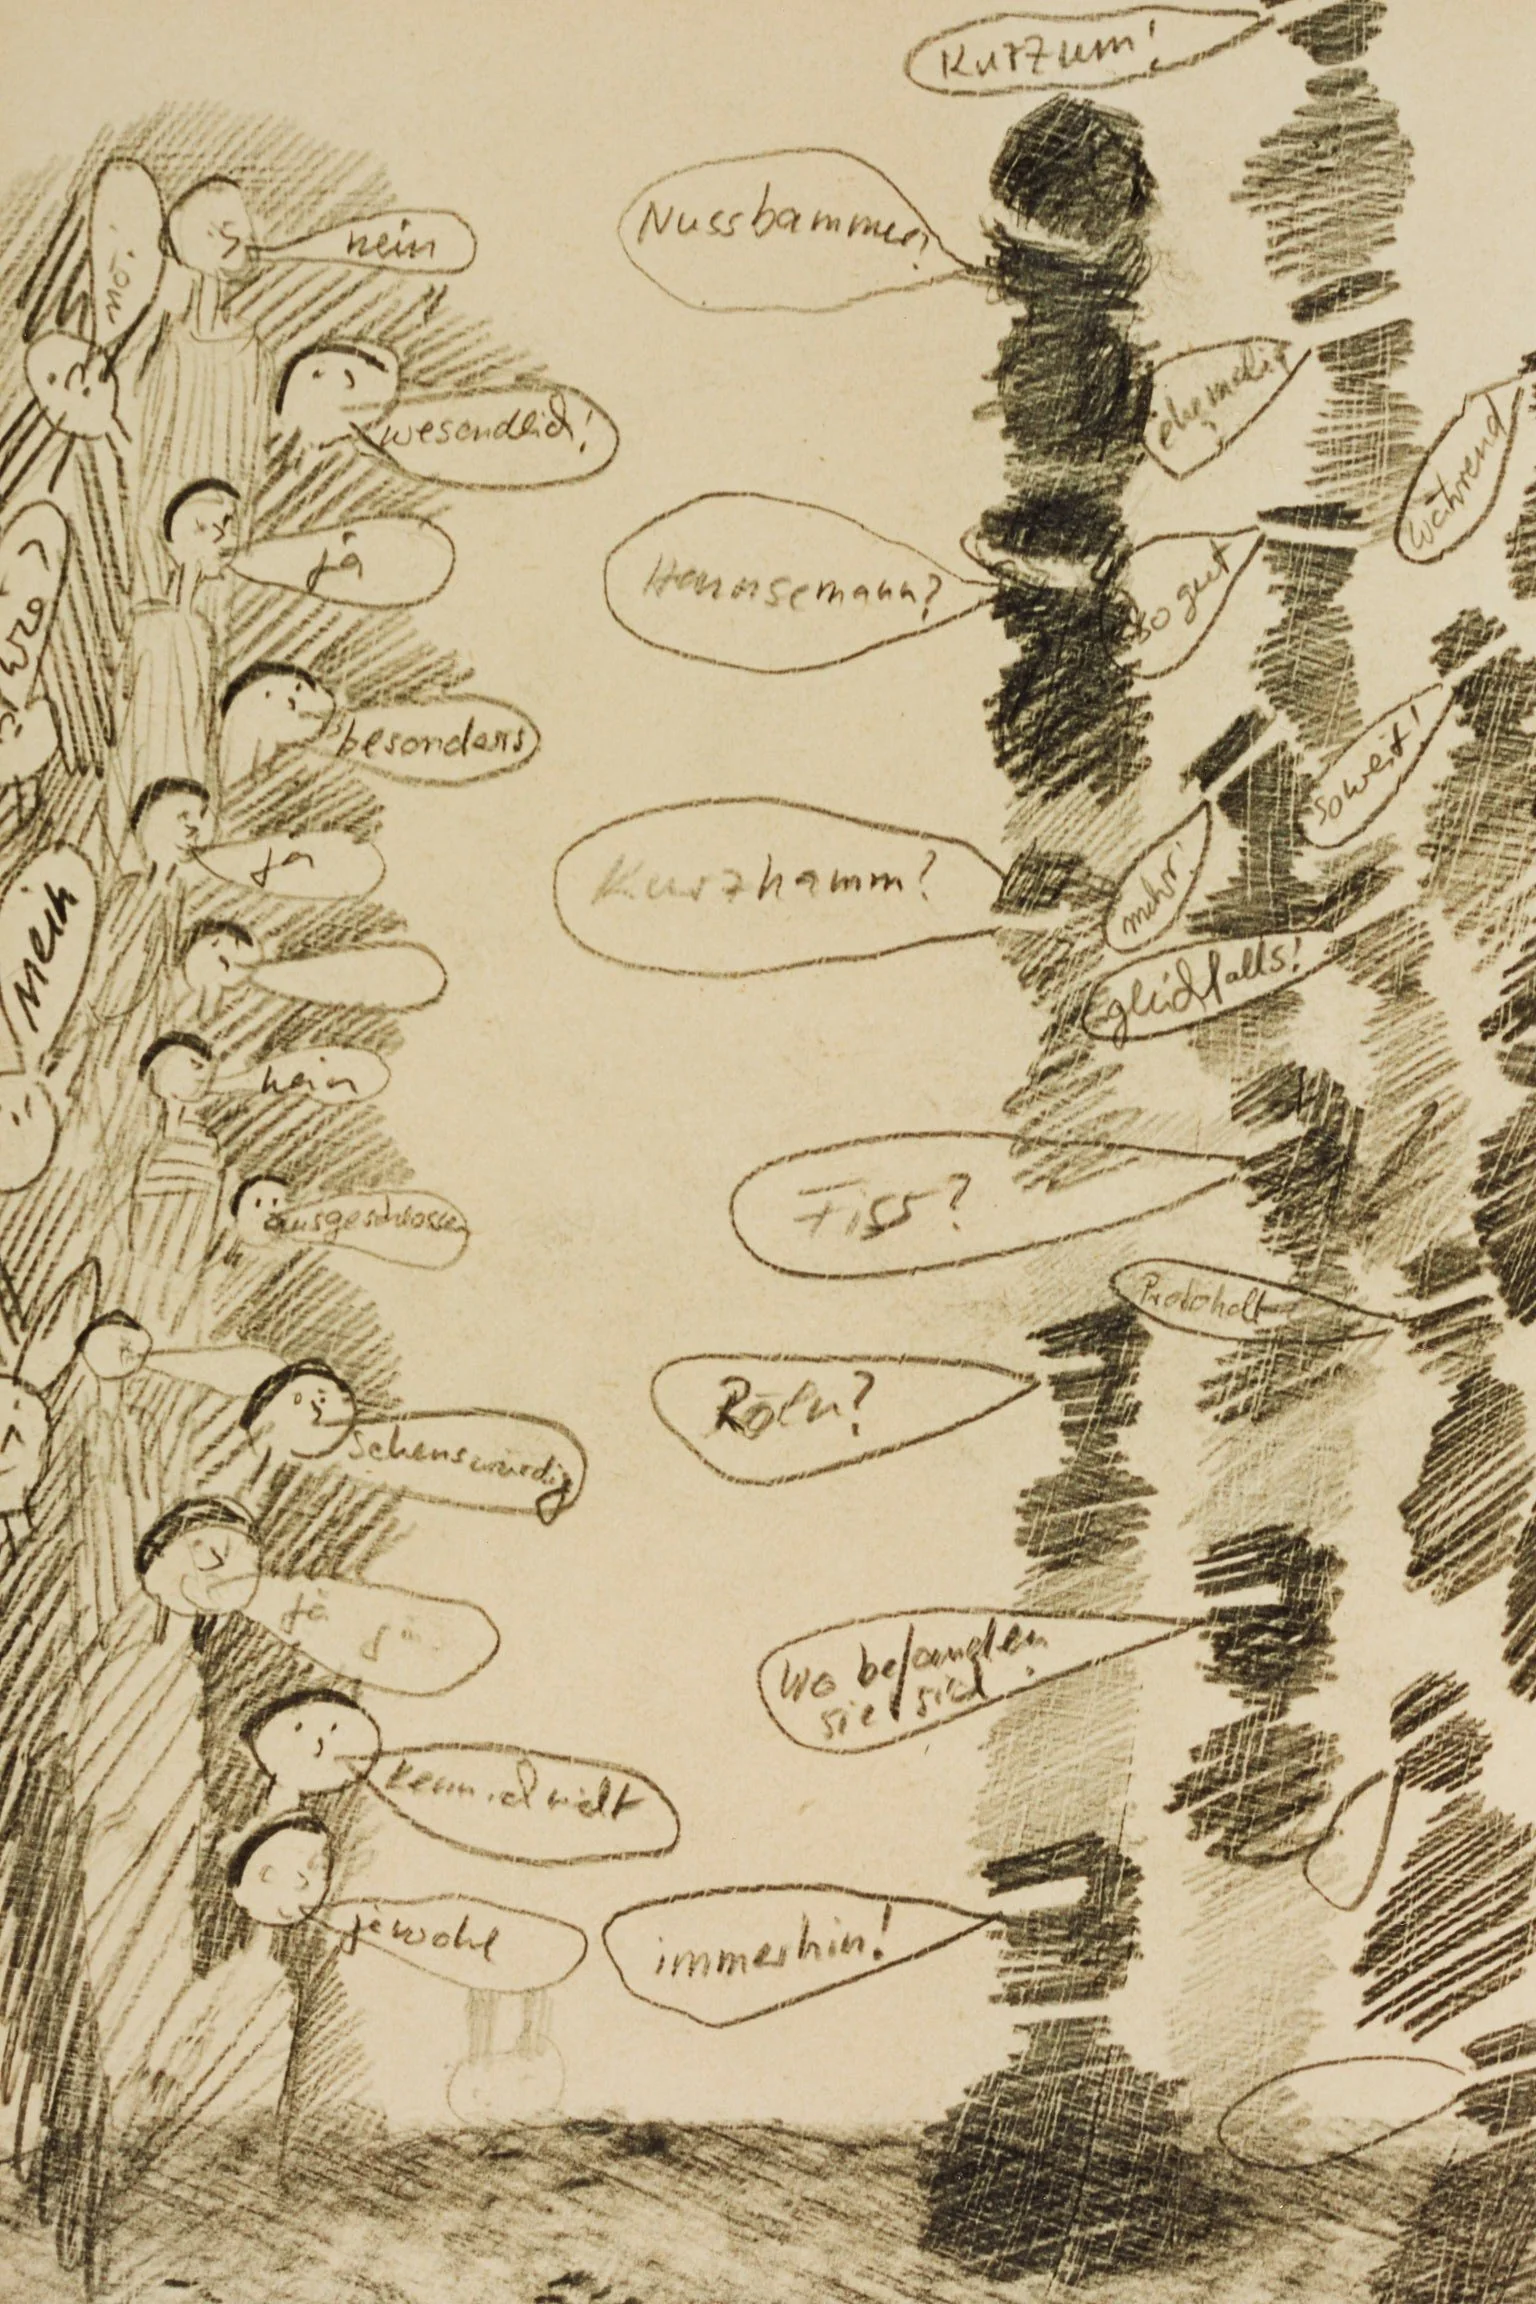 Kurzum!
nein
nö!
Nussbammer?
wesendlich!
ehemalig
während
ja
Hannsemann?
so gut
besonders
soweit!
ja
Kurzhamm?
mehr!
nein
gleichfalls!
nein
Fiss?
ausgeschlossen
Röln?
sehenswürdig
ja ja
Wo befanden
sie sich
kenn ich nicht
jawohl
immerhin!